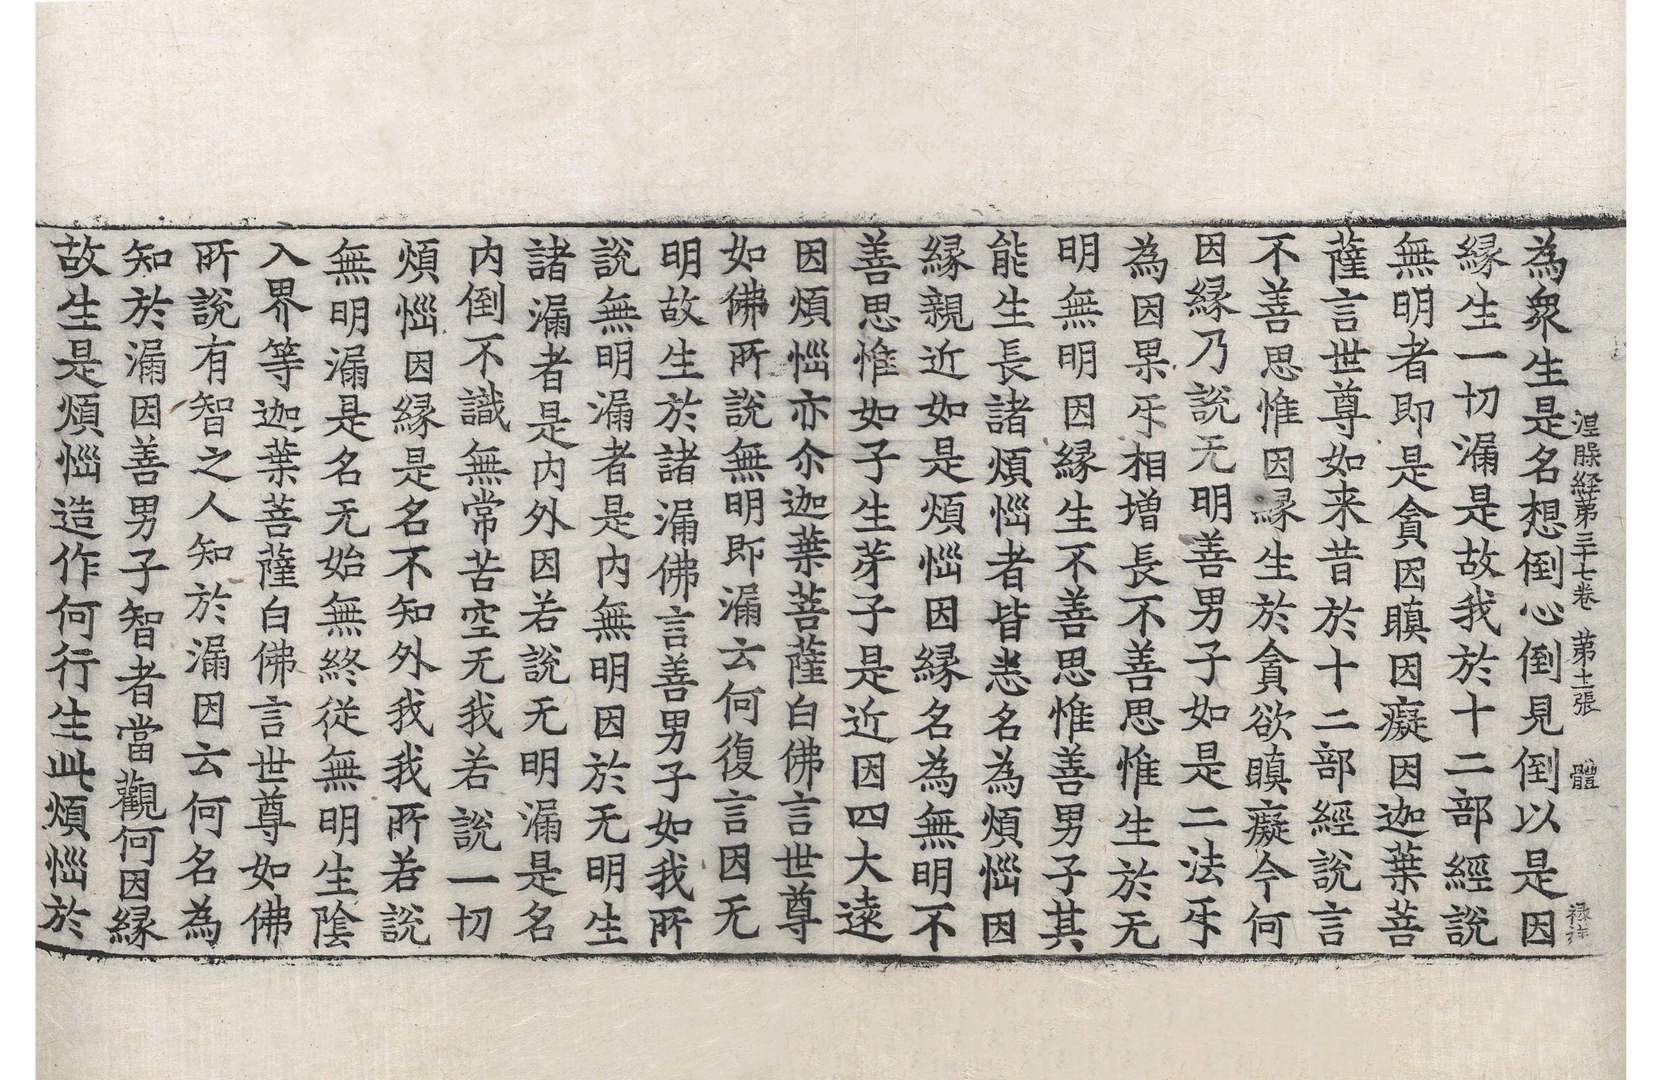 涅槃経苐三十七卷 苐十二張 體
為衆生是名想倒心倒見倒以是因
縁生一切漏是故我於十二部經說
無明者即是貪因瞋因癡因迦葉菩
薩言世尊如来昔於十二部經說言
不善思惟因縁生於貪欲瞋癡今何
因縁乃說无明善男子如是二法㸦
為因果㸦相增長不善思惟生於无
明無明因縁生不善思惟善男子其
能生長諸煩惱者皆悉名為煩惱因
縁親近如是煩惱因縁名為無明不
善思惟如子生芽子是近因四大遠
因煩惱亦尒迦葉菩薩白佛言世尊
如佛所說無明即漏云何復言因无
明故生於諸漏佛言善男子如我所
說無明漏者是內無明因於无明生
諸漏者是內外因若說无明漏是名
內倒不識無常苦空无我若說一切
煩惱因縁是名不知外我我所若說
無明漏是名无始無終從無明生陰
入界等迦葉菩薩白佛言世尊如佛
所說有智之人知於漏因云何名為
知於漏因善男子智者當觀何因縁
故生是煩惱造作何行生此煩惱於